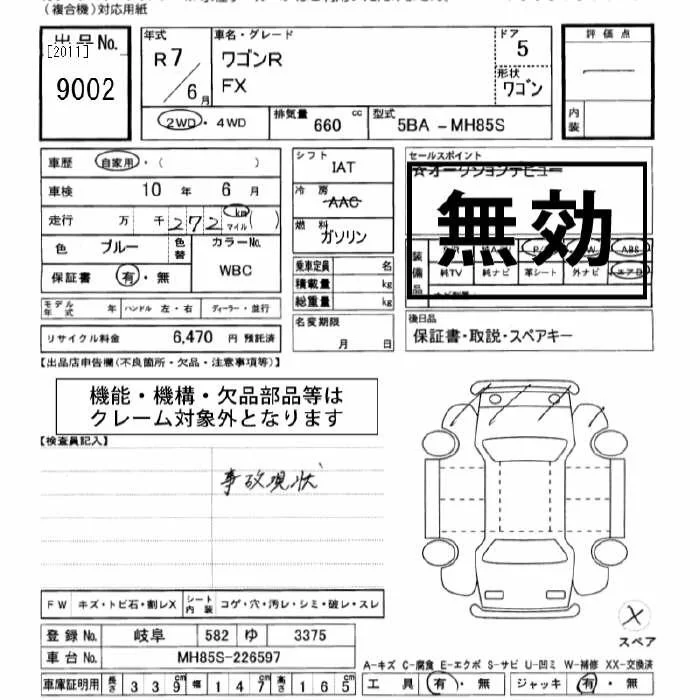 (複合機)対応用紙
出品No. [2011] 9002
年式 R7/6月
車名・グレード ワゴンR FX
ドア 5
形状 ワゴン
評価点 —
内装
2WD・4WD
排気量 660 cc
型式 5BA-MH85S
車歴 自家用・( )
車検 10年 6月
走行 万 千 272 km マイル ( )
色 ブルー 色替 カラーNo. WBC
保証書 有・無
シフト IAT
冷房 AAC
燃料 ガソリン
乗車定員 名
積載量 kg
総重量 kg
セールスポイント
☆オークションデビュー
無効
装備品
ABS
純TV 純ナビ 革シート 外ナビ エアB
モデル年式 年 ハンドル 左・右 ディーラー・並行
名変期限 月 日
後日品
保証書・取説・スペアキー
リサイクル料金 6,470 円 預託済
【出品店申告欄(不良箇所・欠品・注意事項等)】
機能・機構・欠品部品等は
クレーム対象外となります
【検査員記入】
事故現状
FW キズ・トビ石・割レX シート内装 コゲ・穴・汚レ・シミ・破レ・スレ
登録No. 岐阜 582 ゆ 3375
車台No. MH85S-226597
車庫証明用 長さ 339cm 幅 147cm 高さ 165cm
X
スペア
A-キズ C-腐食 E-エクボ S-サビ U-凹ミ W-補修 XX-交換済
工具 有・無 ジャッキ 有・無